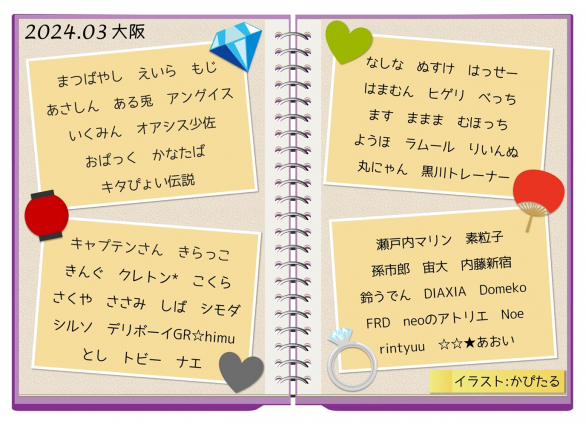 2024.03 大阪
まつばやし えいら もじ
あさしん ある兎 アングイス
いくみん オアシス少佐
おぱっく かなたぱ
キタぴょい伝説
キャプテンさん きらっこ
きんぐ クレトン* こくら
さくや ささみ しば シモダ
シルソ デリボーイGR☆himu
とし トビー ナエ
なしな ぬすけ はっせー
はまむん ヒゲリ べっち
ます ままま むほっち
ようほ ラムール りいんぬ
丸にゃん 黒川トレーナー
瀬戸内マリン 素粒子
孫市郎 宙大 内藤新宿
鈴うでん DIAXIA Domeko
FRD neoのアトリエ Noe
rintyuu ☆☆★あおい
イラスト:かぴたる